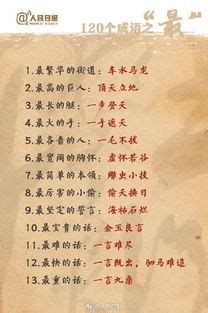 @人民日报
120个成语之“最”
1.最繁华的街道：车水马龙
2.最高的巨人：顶天立地
3.最长的腿：一步登天
4.最大的手：一手遮天
5.最吝啬的人：一毛不拔
6.最宽阔的胸怀：虚怀若谷
7.最简单的本领：雕虫小技
8.最厉害的小偷：偷天换日
9.最坚定的誓言：海枯石烂
10.最宝贵的话：金玉良言
11.最难的话：一言难尽
12.最快的话：一言既出，驷马难追
13.最重的话：一言九鼎
@人民日报